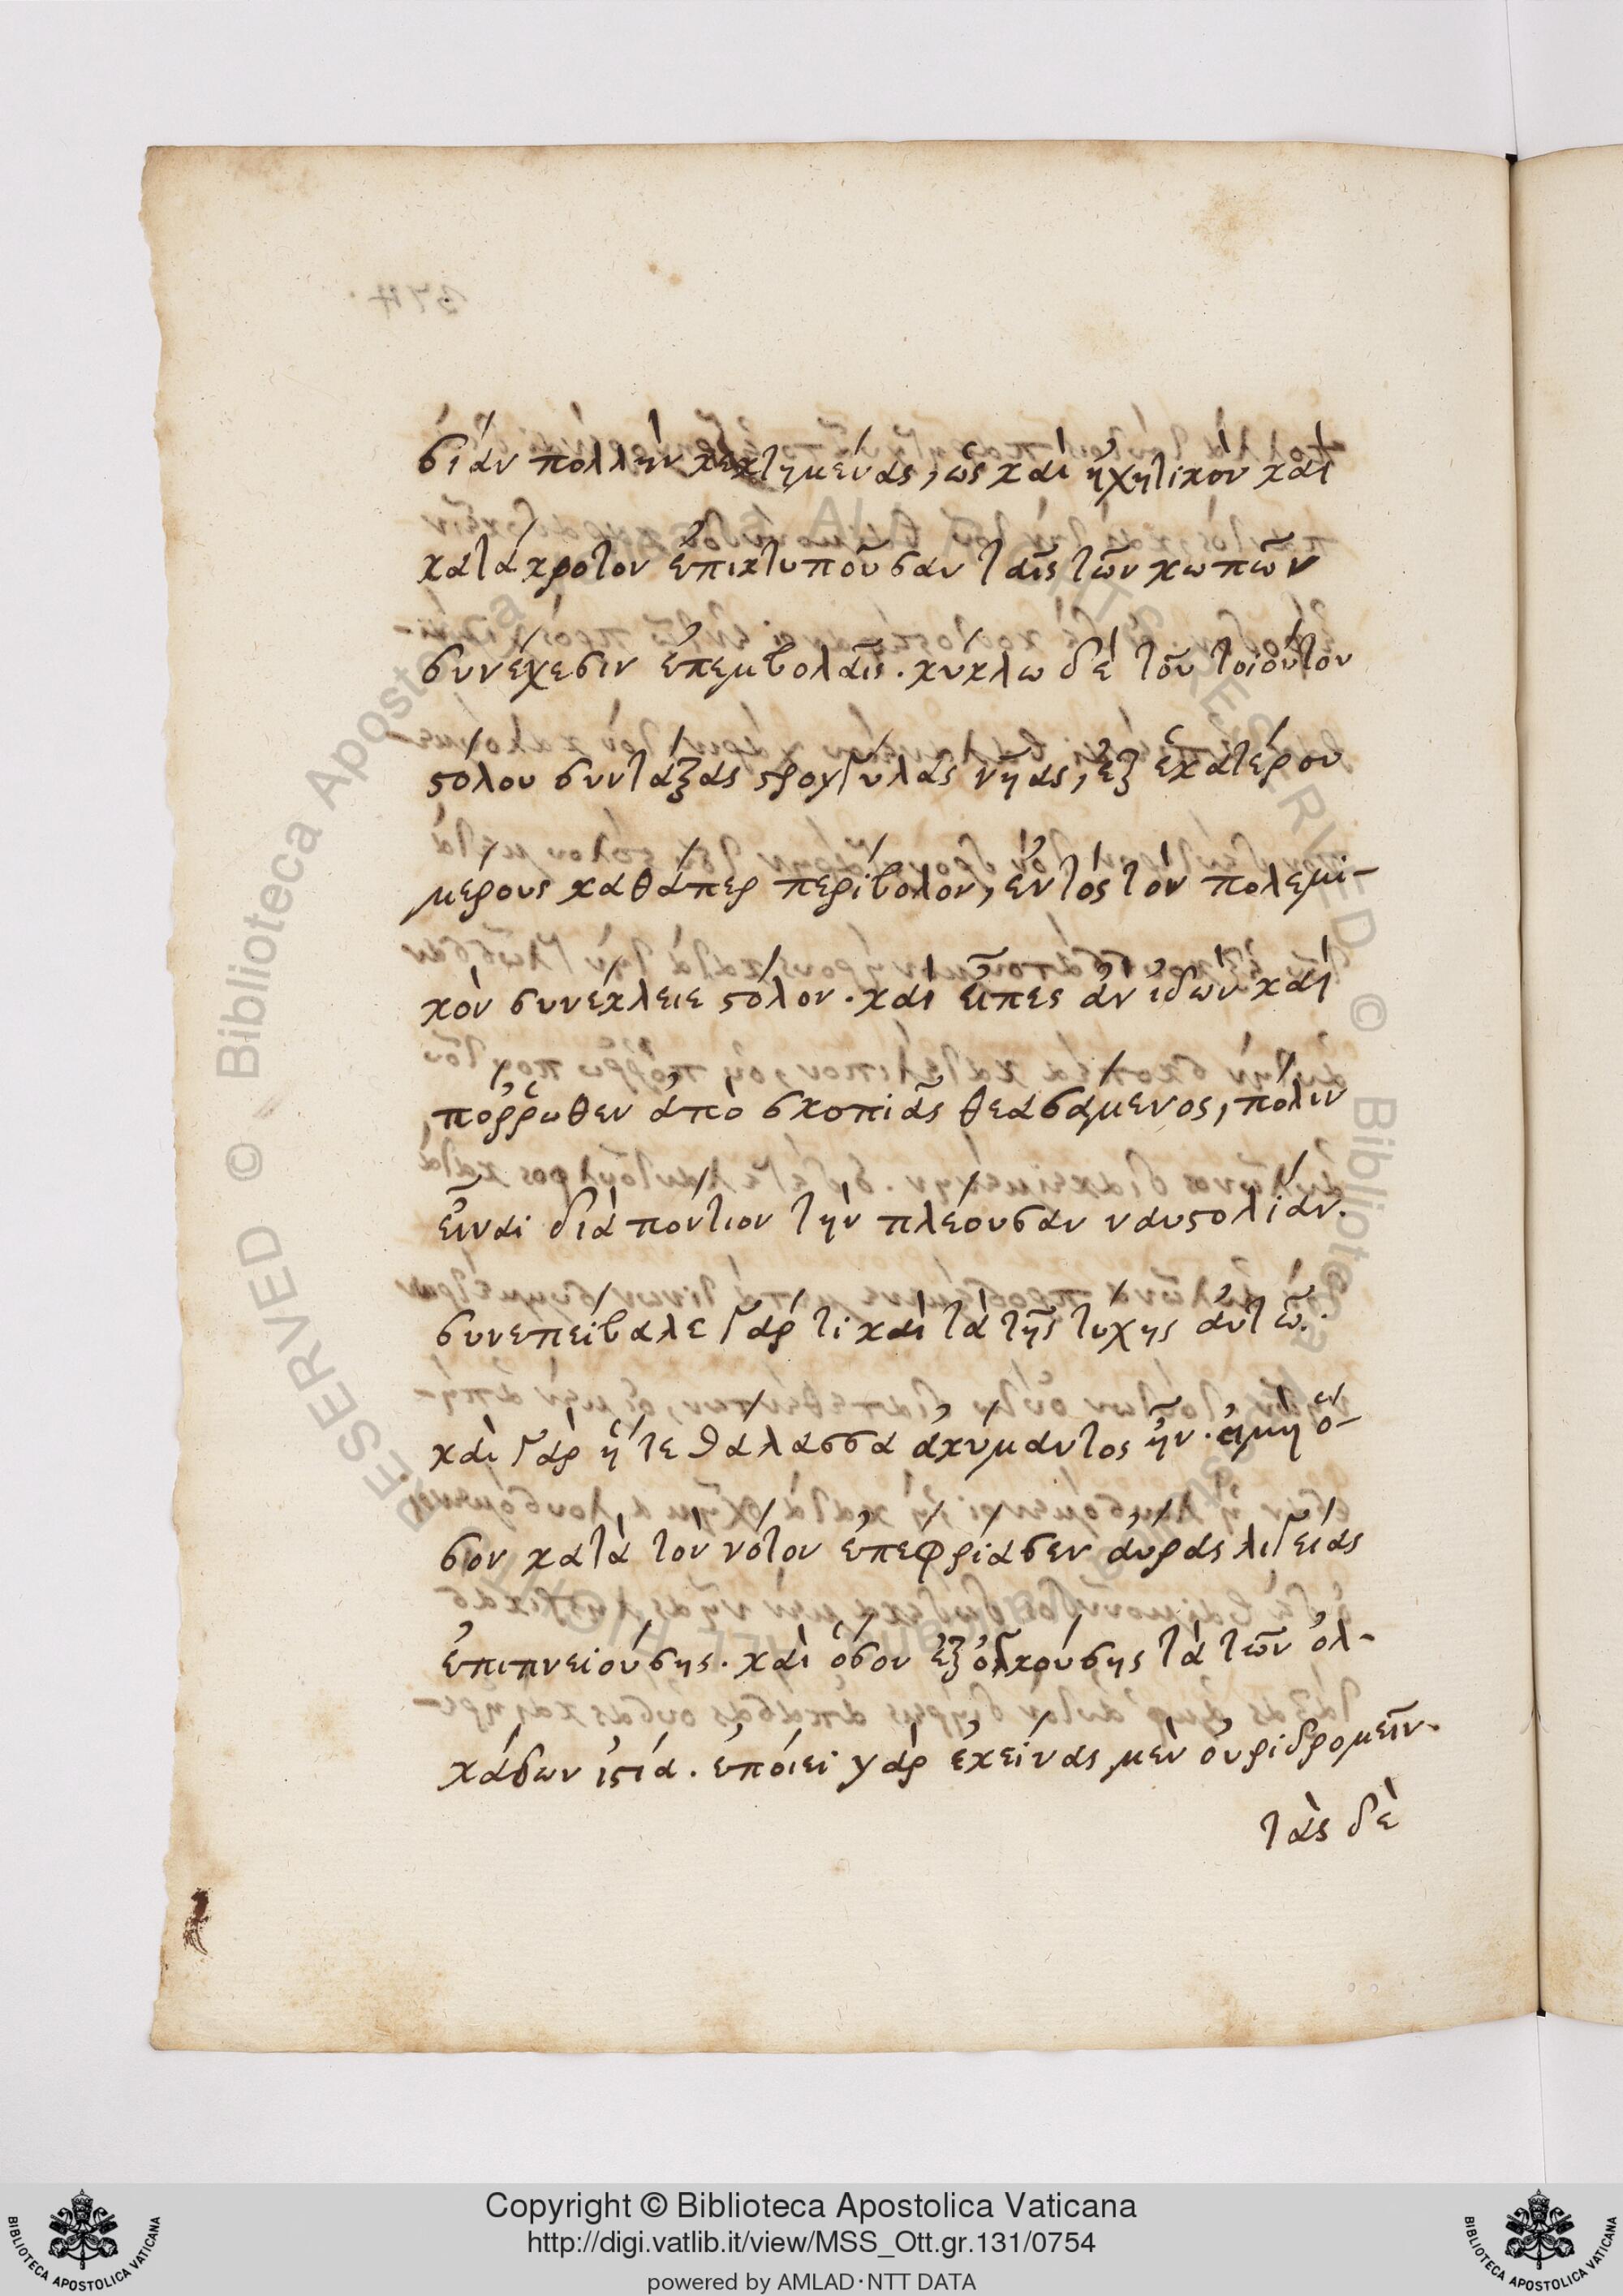 σίαν πολλὴν κεκτημένας, ὡς καὶ ἠχητικὸν καὶ
κατάκροτον ἐπικτυποῦσαν ταῖς τῶν κωπῶν
συνέχεσιν ἐπεμβολαῖς. κύκλω δὲ τοῦ τοιούτου
στόλου συντάξας στρογγύλας νῆας, ἐξ ἑκατέρου
μέρους καθάπερ περίβολον, ἐντὸς τὸν πολεμι-
κὸν συνέκλειε στόλον. καὶ εἶπες ἂν ἰδὼν καὶ
πόῤῥωθεν ἀπὸ σκοπιᾶς θεασάμενος, πόλιν
εἶναι διαπόντιον τὴν πλέουσαν ναυστολίαν.
συνεπείβαλε γάρ τι καὶ τὰ τῆς τύχης αὐτῶ.
καὶ γὰρ ἥ τε θάλασσα ἀκύμαντος ἦν. εἰ μὴ ὅ-
σον κατὰ τὸν νότον ἐπεφρίασεν αὔρας λιγείας
ἐπιπνειούσης. καὶ ὅσον ἐξολκούσης τὰ τῶν ὁλ-
κάδων ἱστία. ἐποίει γὰρ ἐκείνας μὲν οὐριδρομεῖν.
τὰς δὲ
Copyright © Biblioteca Apostolica Vaticana
http://digi.vatlib.it/view/MSS_Ott.gr.131/0754
powered by AMLAD·NTT DATA
BIBLIOTECA APOSTOLICA VATICANA
BIBLIOTECA APOSTOLICA VATICANA